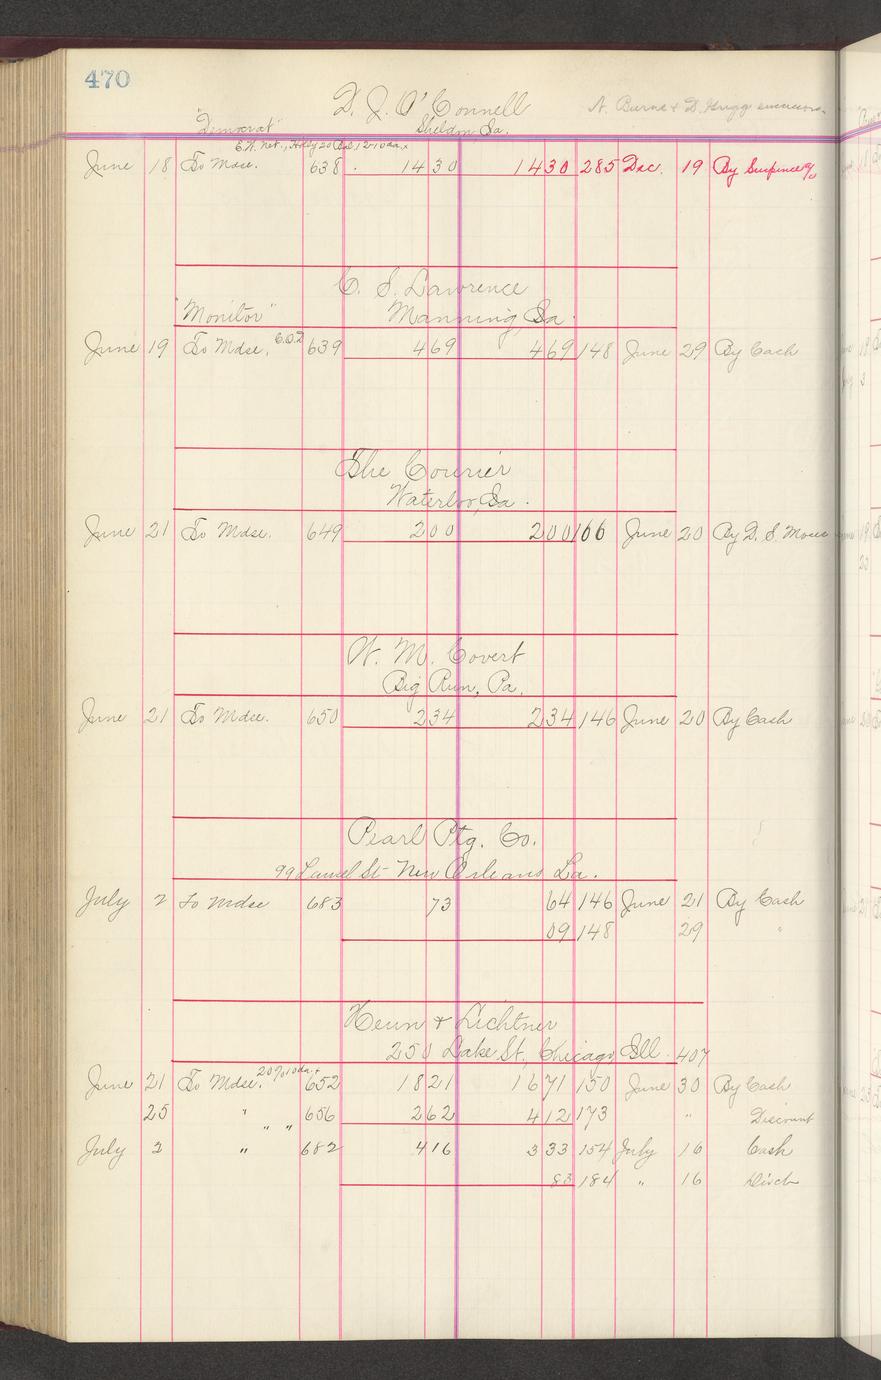 470
D. J. O'Connell
"Democrat" Sheldon Ia.
June 18 To Mdse. 638 14 30 14 30 285 Dec. 19 By Suspence %
C. S. Lawrence
"Monitor" Manning, Ia.
June 19 To Mdse. C.O.D 639 4 69 4 69 148 June 29 By Cash
The Courier
Waterloo, Ia.
June 21 To Mdse. 649 2 00 2 00 166 June 20 By D. S. Moses
W. M. Covert
Big Run, Pa.
June 21 To Mdse. 650 2 34 2 34 146 June 20 By Cash
Pearl Ptg. Co.
99 Laurel St New Orleans La.
July 2 To Mdse 683 73 64 146 June 21 By Cash
09 148 29 "
Heun & Lichtner
250 Lake St., Chicago, Ill. 407
June 21 To Mdse. 20% 10 da. + 652 18 21 16 71 150 June 30 By Cash
25 " " " 656 2 62 4 12 173 " Discount
July 2 " 682 4 16 3 33 154 July 16 Cash
83 184 " 16 Disct